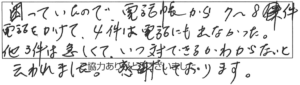 困っていたので、電話帳から7〜8件
電話をかけて、4件は電話にも出なかった。
他3件は忙しくて、いつ対できるかわからないと
云われました。感謝しております。
協力ありがとうございま